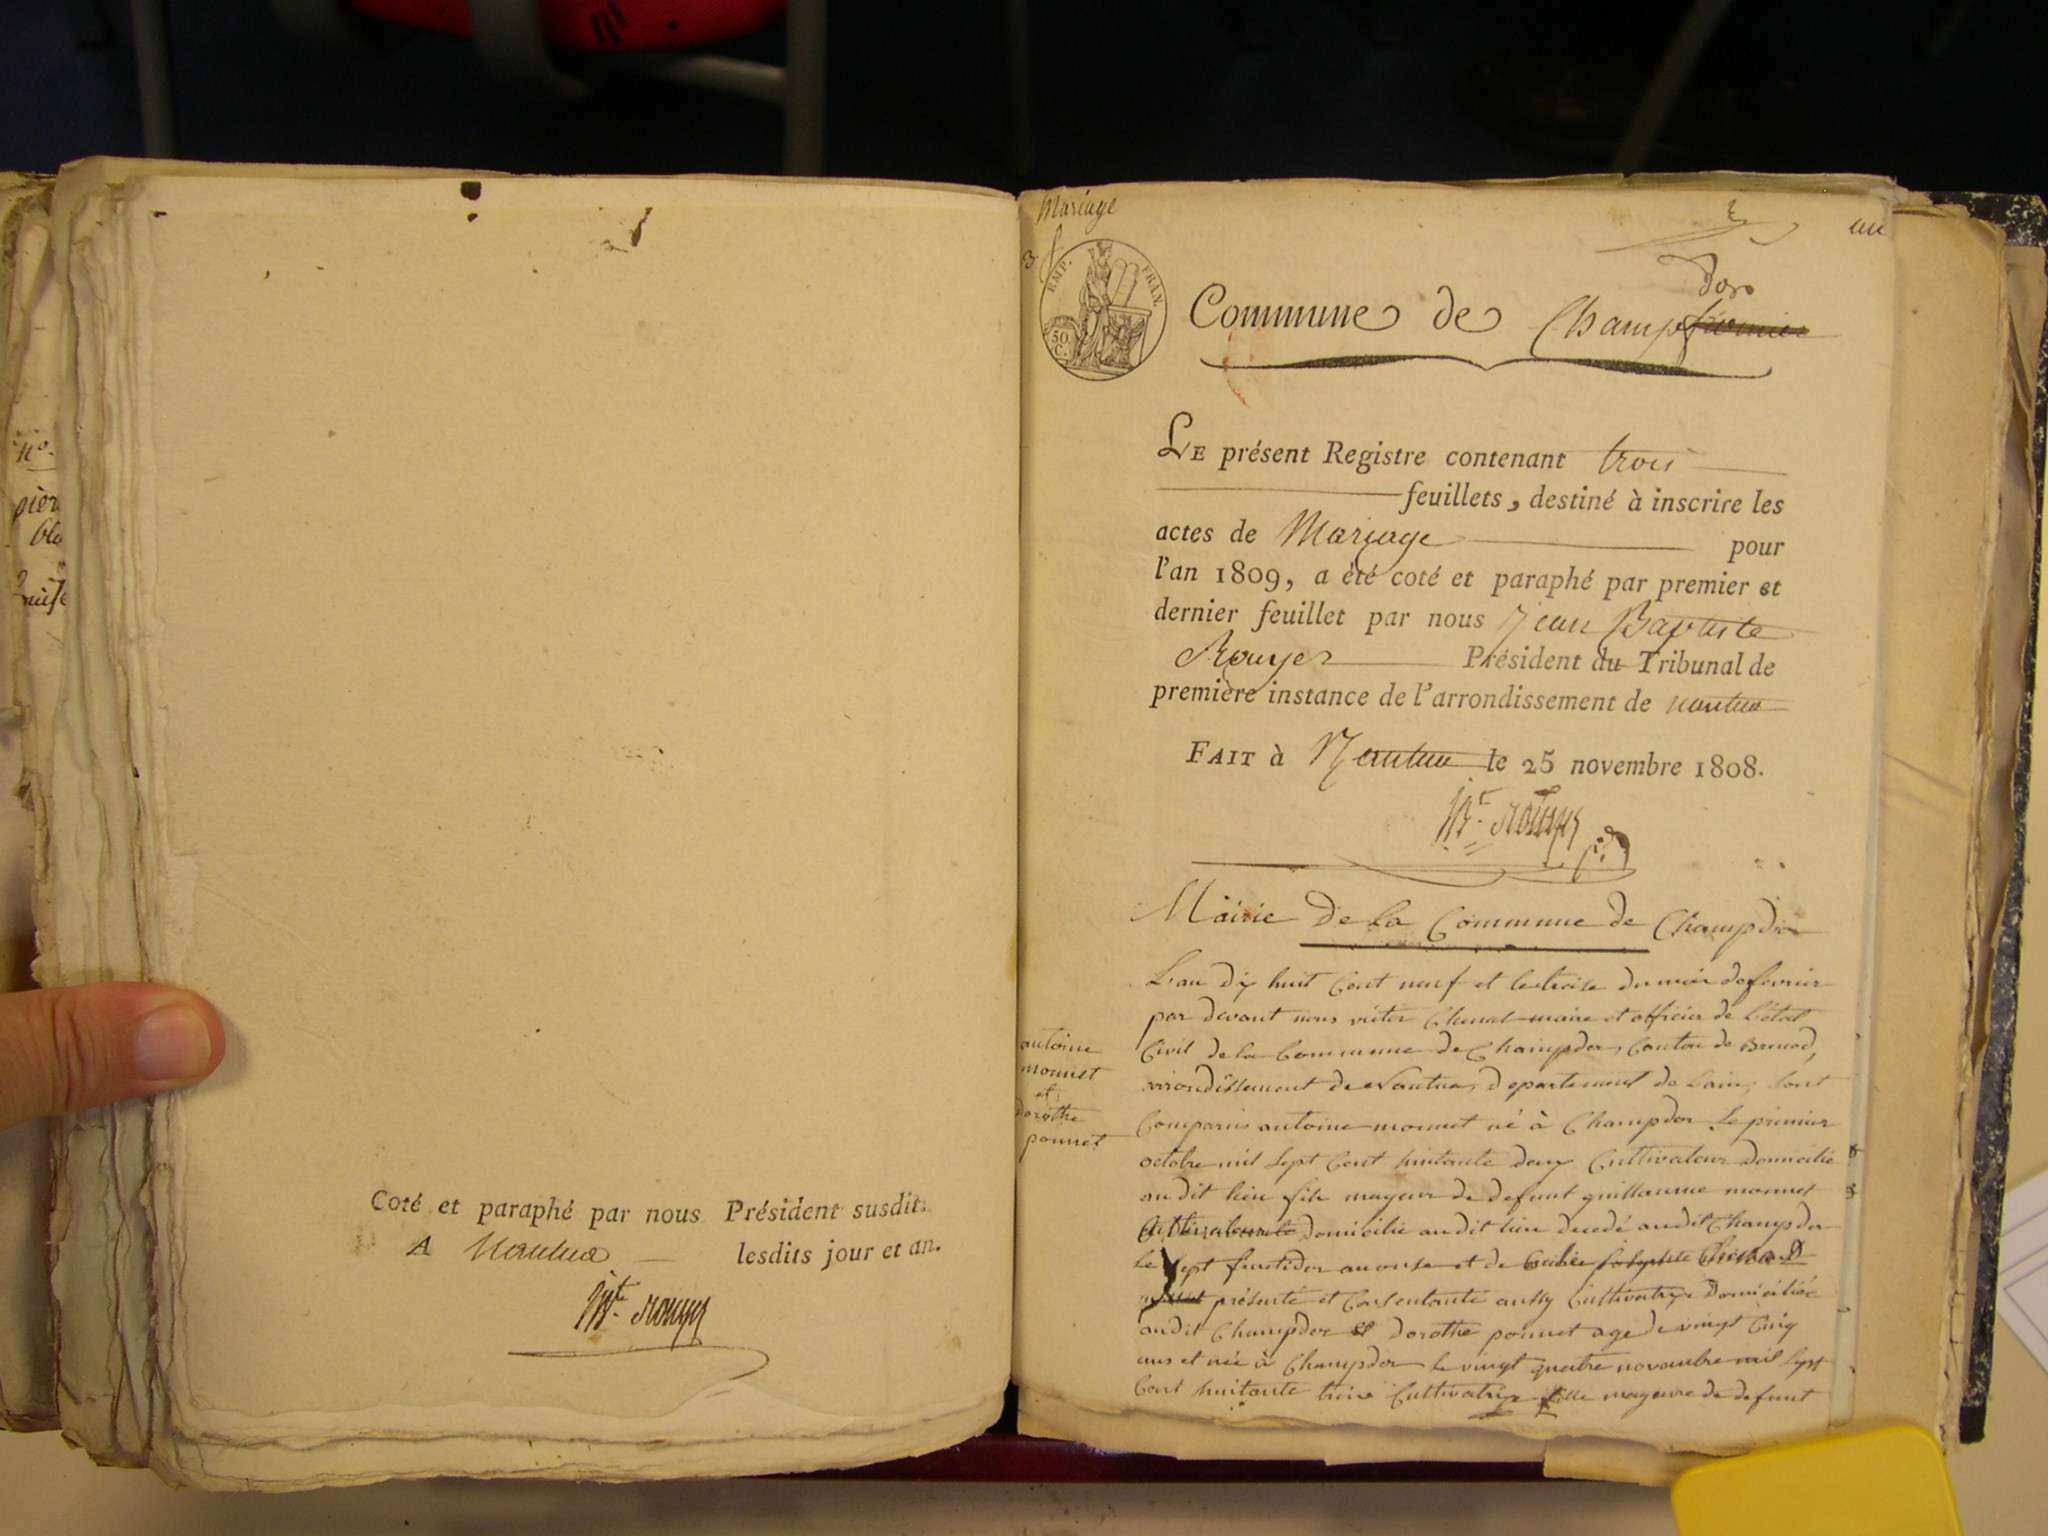 Coté et paraphé par nous Président susdit.
A Nantua lesdits jour et an.
Bte. Rouyer
Mariage
3
EMP. FRAN.
50 C.
au
Commune de Champfromier
dor
LE présent Registre contenant trois
feuillets, destiné à inscrire les
actes de Mariage pour
l'an 1809, a été coté et paraphé par premier et
dernier feuillet par nous Jean Baptiste
Rouyer Président du Tribunal de
première instance de l'arrondissement de nantua
FAIT à Nantua le 25 novembre 1808.
Bte. Rouyer
Mairie De la Commune de Champdor
antoine
monnet
et
dorothe
ponnet
L'an dix huit Cent neuf et le treise du mois de fevrier
par devant nous victor Chenal maire et officier de l'état
Civil de la Commune de Champdor, Canton de Brenod,
arrondissement de Nantua, departement de Lain, sont
Comparus antoine monnet né à Champdor le premier
octobre mil sept Cent huitante deux Cultivateur Domicilié
au dit lieu fils mayeur de defunt guillaume monnet
Cultivateur domicilié au dit lieu decedé au dit Champdor
Le sept fructidor an onse et de
présente et Consentante aussy Cultivatrix Domiciliée
au dit Champdor et Dorothe ponnet age de vingt Cinq
ans et née à Champdor le vingt quatre novembre mil sept
Cent huitante troix Cultivatrix fille mayeure de defunt